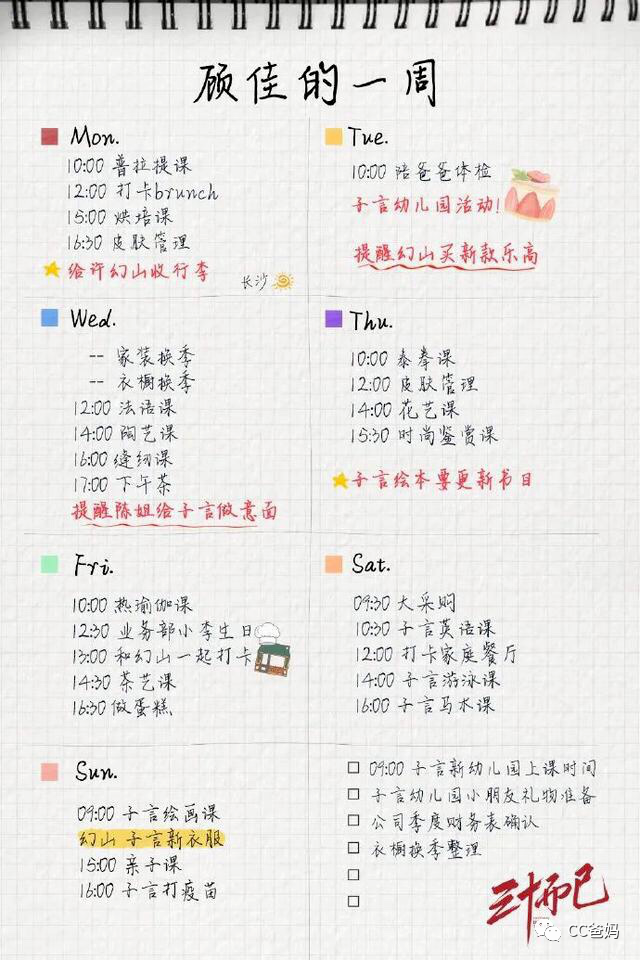 顾佳的一周
Mon.
10:00 普拉提课
12:00 打卡brunch
15:00 烘培课
16:30 皮肤管理
给许幻山收行李
长沙
Tue.
10:00 陪爸爸体检
子言幼儿园活动!
提醒幻山买新款乐高
Wed.
-- 家装换季
-- 衣橱换季
12:00 法语课
14:00 陶艺课
16:00 缝纫课
17:00 下午茶
提醒陈姐给子言做意面
Thu.
10:00 泰拳课
12:00 皮肤管理
14:00 花艺课
15:30 时尚鉴赏课
子言绘本要更新书目
Fri.
10:00 热瑜伽课
12:30 业务部小李生日
13:00 和幻山一起打卡
14:30 茶艺课
16:30 做蛋糕
Sat.
09:30 大采购
10:30 子言英语课
12:00 打卡家庭餐厅
14:00 子言游泳课
16:00 子言马术课
Sun.
09:00 子言绘画课
幻山 子言新衣服
15:00 亲子课
16:00 子言打疫苗
09:00 子言新幼儿园上课时间
子言幼儿园小朋友礼物准备
公司季度财务表确认
衣橱换季整理
三十而已
CC爸妈